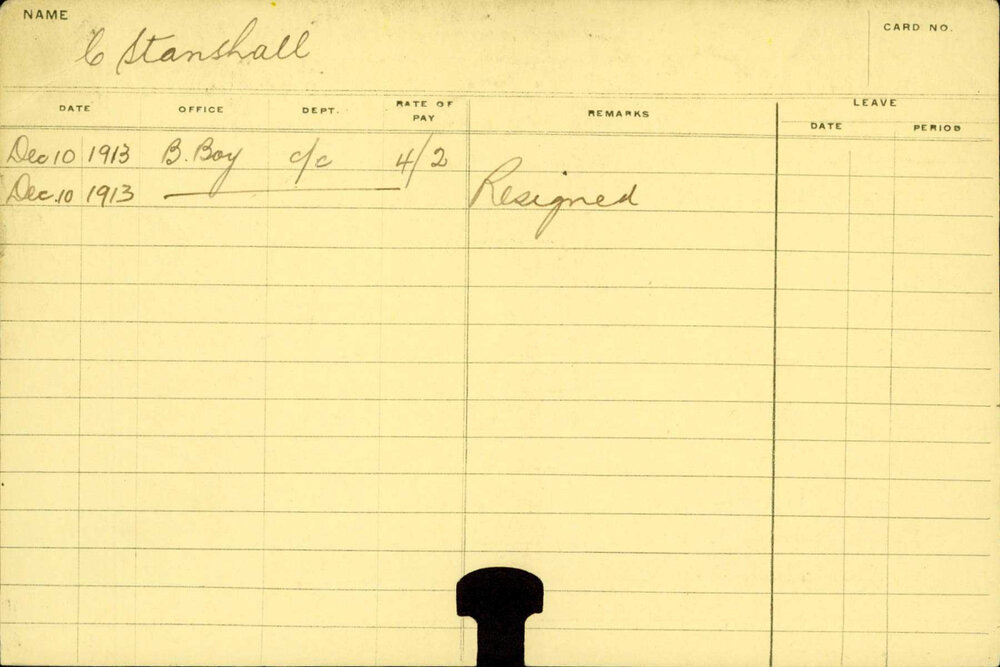 NAME
C Stanshall
CARD NO.
DATE OFFICE DEPT. RATE OF PAY REMARKS LEAVE
DATE PERIOD
Dec 10 1913 B. Boy c/c 4/2
Dec. 10 1913 Resigned